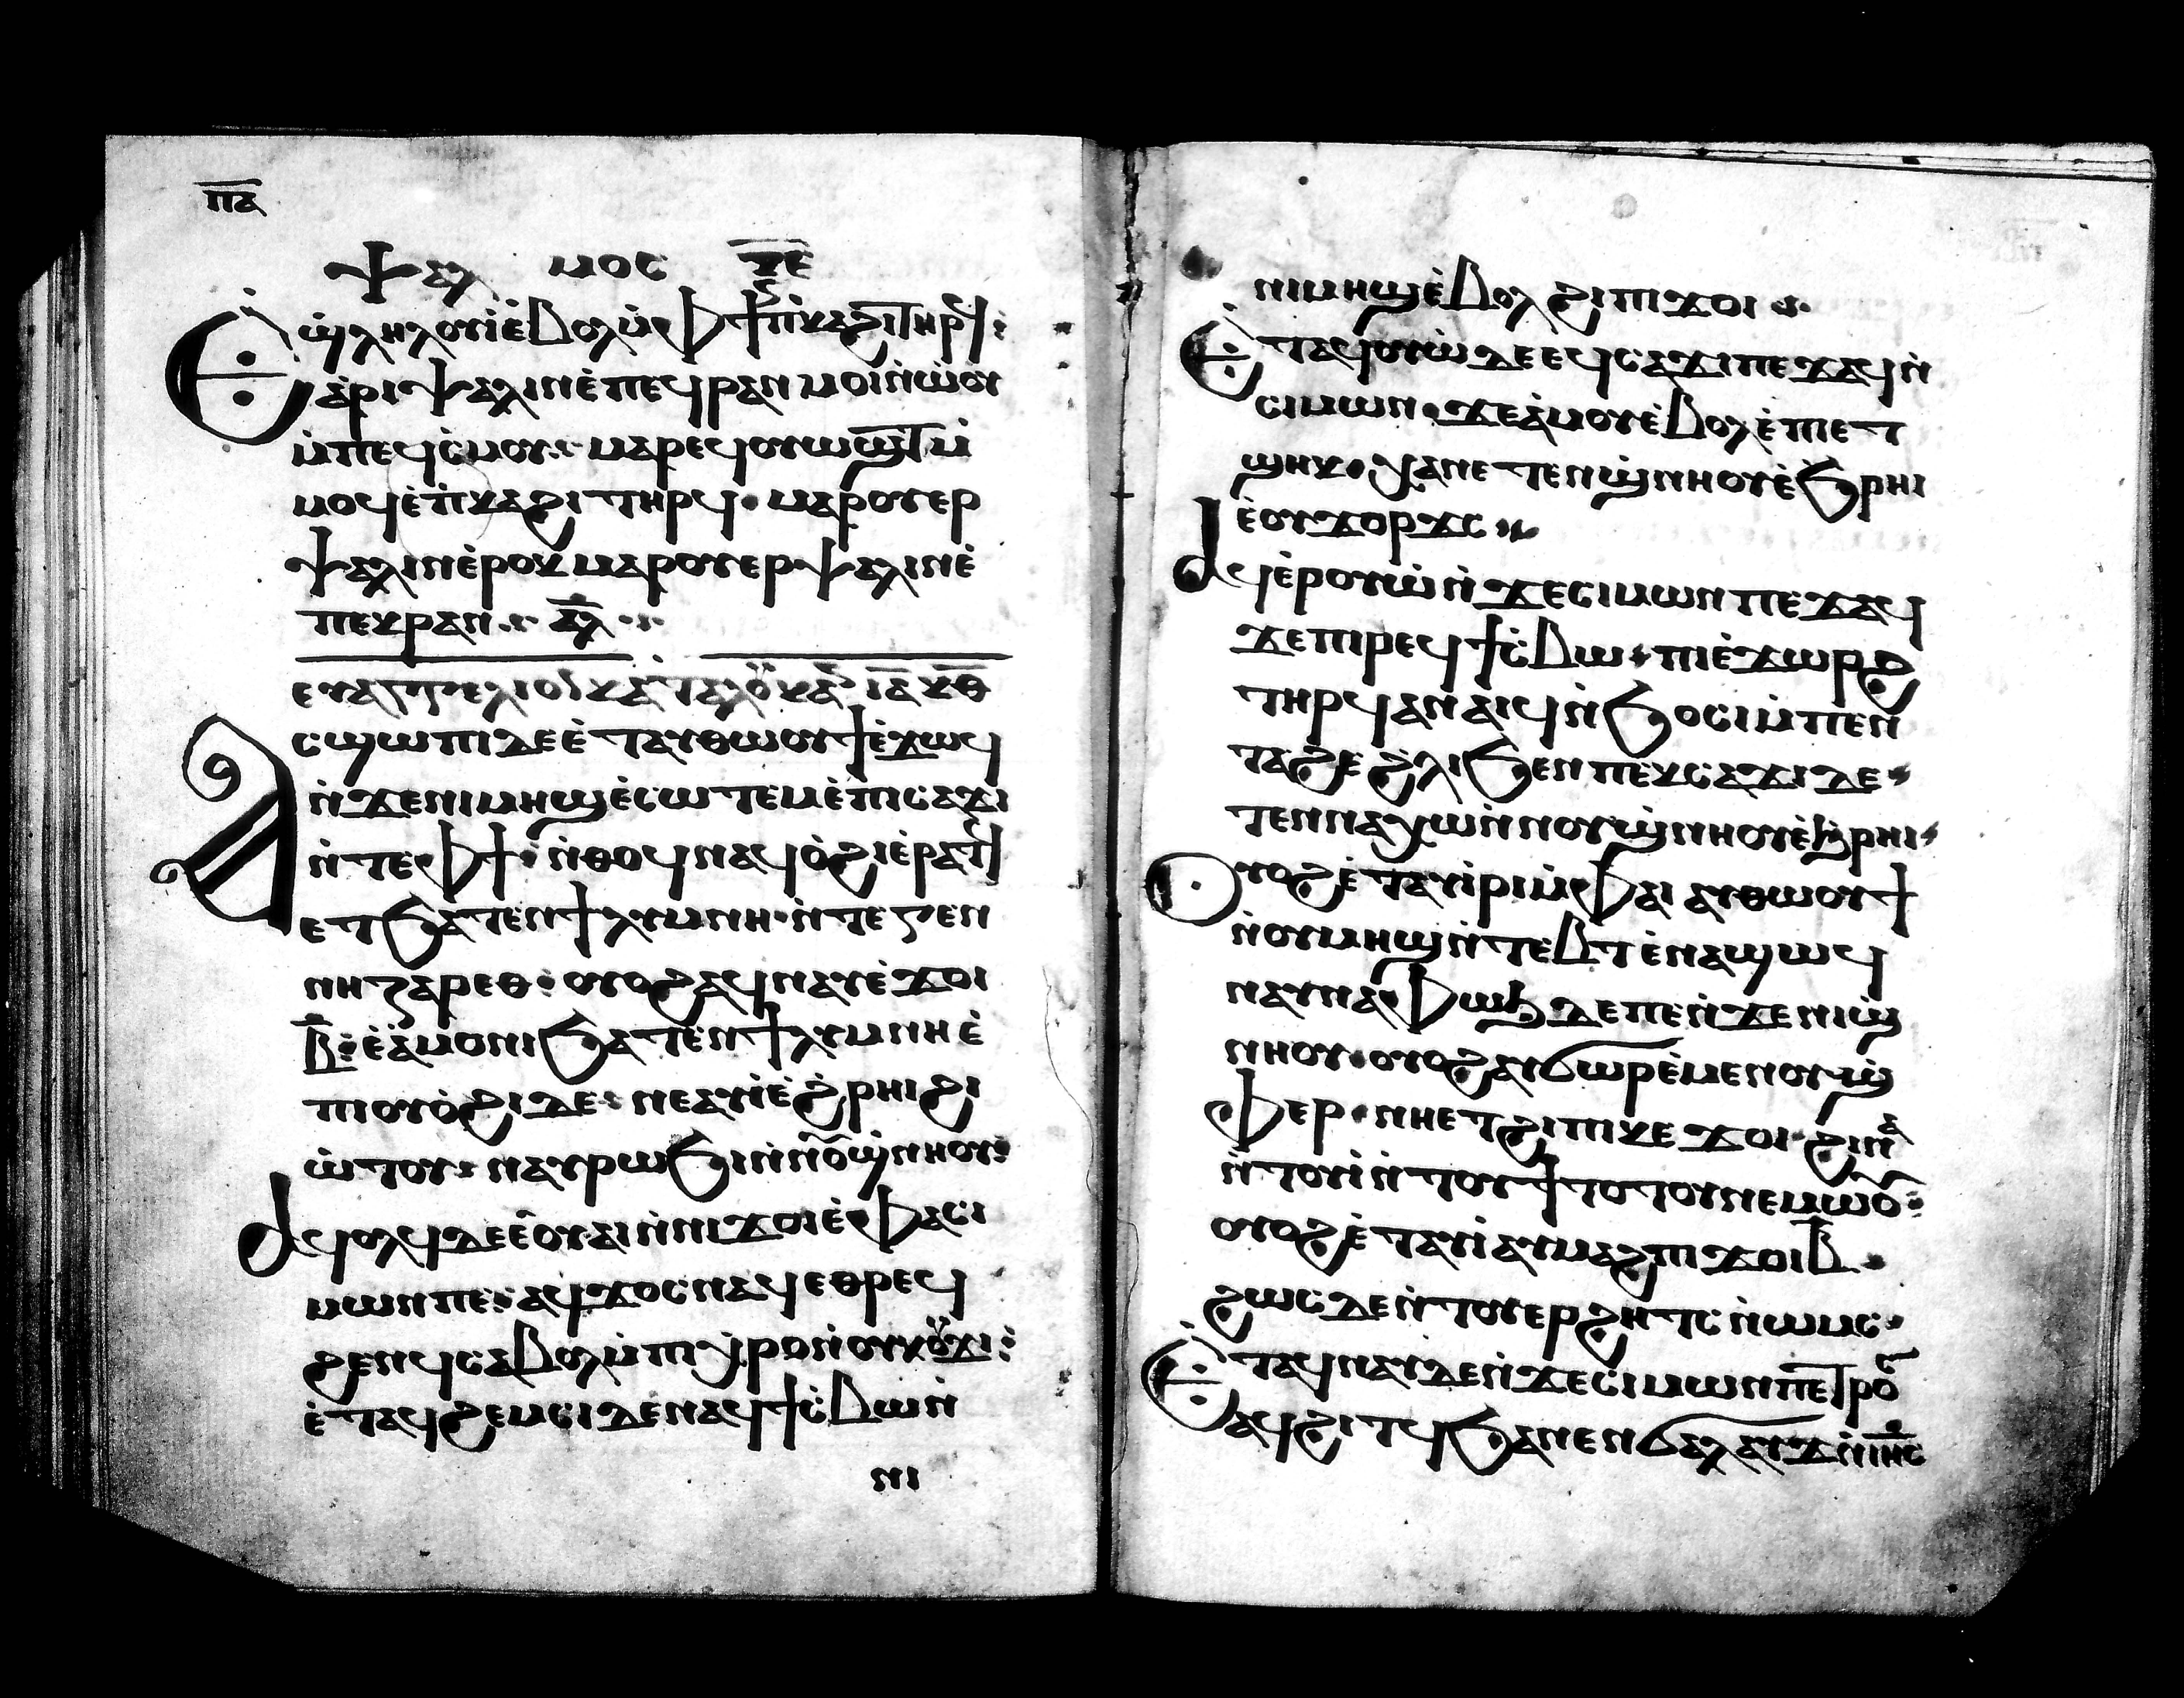 ⲡ̅ⲁ̅
ⲯⲁⲗ ⲙⲟⲥ ⲝ̅ⲉ̅
Ⲉϣ̀ⲗⲏⲗⲟⲩⲓ̀ⲉ̀ⲃⲟⲗⲙ̀ⲫϯⲡ̀ⲕⲁϩⲓⲧⲏⲣϥ:
ⲁ̀ⲣⲓⲯⲁⲗⲓⲛⲉ̀ⲡⲉϥⲣⲁⲛ ⲙⲟⲓⲛ̀ⲱ̀ⲟⲩ
ⲙ̀ⲡⲉϥⲥ̀ⲙⲟⲩ⁘ ⲙⲁⲣⲉϥⲟⲩⲱϣⲧⲙ̀
ⲙⲟϥⲉ̀ⲡ̀ⲕⲁϩⲓ ⲧⲏⲣϥ· ⲙⲁⲣⲟⲩⲉⲣ
ⲯⲁⲗⲓⲛⲉ̀ⲣⲟⲕ ⲙⲁⲣⲟⲩⲉⲣⲯⲁⲗⲓⲛⲉ̀
ⲡⲉⲕⲣⲁⲛ⁘ ⲁ̅ⲗ̅ ⁘
ⲉⲩⲁⲅⲅⲉⲗⲓⲟⲛ ⲕⲁⲧⲁⲗⲟⲩⲕⲁⲛ ⲓ̅ⲁ̅ ⲕ̅ⲑ̅
Ⲁⲥϣⲱⲡⲓ ⲇⲉ ⲉ̀ⲧⲁⲩⲑⲱⲟⲩϯⲉ̀ϫⲱϥ
ⲛ̀ϫⲉⲛⲓⲙⲏϣⲉ̀ⲥⲱⲧⲉⲙⲉ̀ⲡⲓⲥⲁϫⲓ
ⲛ̀ⲧⲉⲫϯ· ⲛ̀ⲑⲟϥⲛⲁϥⲟ̀ϩⲓⲉ̀ⲣⲁⲧϥ
ⲉⲧϧⲁⲧⲉⲛϯⲗⲩⲙⲛⲏ· ⲛ̀ⲧⲉⲅⲉⲛ
ⲛⲏⲍⲁⲣⲉⲑ· ⲟⲩⲟϩⲁϥⲛⲁⲩⲉ̀ϫⲟⲓ
ⲃ̅: ⲉ̀ⲁ̀ⲙⲟⲛⲓ ϧⲁⲧⲉⲛϯⲗⲩⲙⲛⲏⲉ̀
ⲡⲓⲟⲩⲟ̀ϩⲓ ⲇⲉ: ⲛⲉⲁⲩⲓ̀ⲉ̀ϩ̀ⲣⲏⲓ ϩⲓ
ⲱ̀ⲧⲟⲩ: ⲛⲁⲩⲣⲱϧⲓⲛ̀ⲛⲟⲩϣ̀ⲛⲏⲟⲩ:
Ⲁϥⲟⲗϥⲇⲉⲉ̀ⲟⲩⲁⲓⲛ̀ⲛⲓϫⲟⲓⲉ̀ⲫⲁⲥⲓ
ⲙⲱⲛⲡⲉ: ⲁϥϫⲟⲥⲛⲁϥⲉⲑⲣⲉϥ
ϩⲉⲛϥⲥⲁⲃⲟⲗⲙ̀ⲡⲓⲭ̀ⲣⲟⲛ̀ⲟⲩⲕⲟⲩϫⲓ:
ⲉ̀ⲧⲁϥϩⲉⲙⲥⲓ ⲇⲉⲛⲁϥϯⲥ̀ⲃⲱⲛ̀
ⲛⲓ
ⲛⲓⲙⲏϣⲉ̀ⲃⲟⲗ ϩⲓⲡⲓϫⲟⲓ ⁘
Ⲉⲧⲁϥⲟⲩⲱ̀ ⲇⲉⲉϥⲥⲁϫⲓ ⲡⲉϫⲁϥⲛ̀
ⲥⲓⲙⲱⲛ· ϫⲉⲁ̀ⲙⲟⲩⲉ̀ⲃⲟⲗⲉ̀ⲡⲉⲧ
ϣⲏⲕ· ⲭⲁⲛⲉⲧⲉⲛϣ̀ⲛⲏⲟⲩⲉ̀ϧⲣⲏⲓ
ⲉ̀ⲟⲩϫⲟⲣϫⲥ ⁘
Ⲁϥⲉ̀ⲣⲟⲩⲱ̀ⲛ̀ϫⲉⲥⲓⲙⲱⲛ ⲡⲉϫⲁϥ
ϫⲉⲡⲓⲣⲉϥϯⲥ̀ⲃⲱ· ⲡⲓⲉ̀ϫⲱⲣϩ
ⲧⲏⲣϥⲁⲛⲁⲓϥⲛ̀ϧⲟⲥⲓ ⲙ̀ⲡⲉⲛ
ⲧⲁϩⲉ ϩ̀ⲗⲓ ϧⲉⲛⲡⲉⲕⲥⲁϫⲓ ⲇⲉ·
ⲧⲉⲛⲛⲁⲭⲱⲛ̀ⲛⲟⲩϣ̀ⲛⲏⲟⲩⲉ̀ϧⲣⲏⲓ·
Ⲟⲩⲟϩⲉ̀ⲧⲁⲩⲓ̀ⲣⲓⲙ̀ⲫⲁⲓ ⲁⲩⲑⲱⲟⲩϯ
ⲛ̀ⲟⲩⲙⲏϣⲛ̀ⲧⲉⲃⲧ ⲉ̀ⲛⲁϣⲱϥ
ⲛⲁⲩⲛⲁⲫⲱϧⲇⲉⲡⲉⲛ̀ϫⲉⲛⲓϣ̀
ⲛⲏⲟⲩ· ⲟⲩⲟϩⲁⲩϭⲱⲣⲉ̀ⲙⲉⲛⲟⲩϣ̀
ⲫⲉⲣ· ⲛⲏⲉⲧϩⲓⲡⲓⲕⲉϫⲟⲓ· ϩⲓⲛⲁ
ⲛ̀ⲧⲟⲩⲓ̀ⲛ̀ⲧⲟⲩϯⲧⲟⲧⲟⲩⲛⲉⲙⲱⲟⲩ:
ⲟⲩⲟϩⲉ̀ⲧⲁⲩⲓ̀ⲁⲩⲙⲁϩⲡⲓϫⲟⲓⲃ̅·
ϩⲱⲥⲇⲉⲛ̀ⲧⲟⲩⲉⲣϩⲏⲧⲥⲛ̀ⲱⲙⲥ·
Ⲉⲧⲁϥⲛⲁⲩⲇⲉⲛ̀ϫⲉⲥⲓⲙⲱⲛⲡⲉⲧⲣⲟⲥ
ⲁϥϩⲓⲧϥϧⲁⲛⲉⲛϭⲁⲗⲁⲩϫⲛ̀ⲓ̅ⲏ̅ⲥ̅